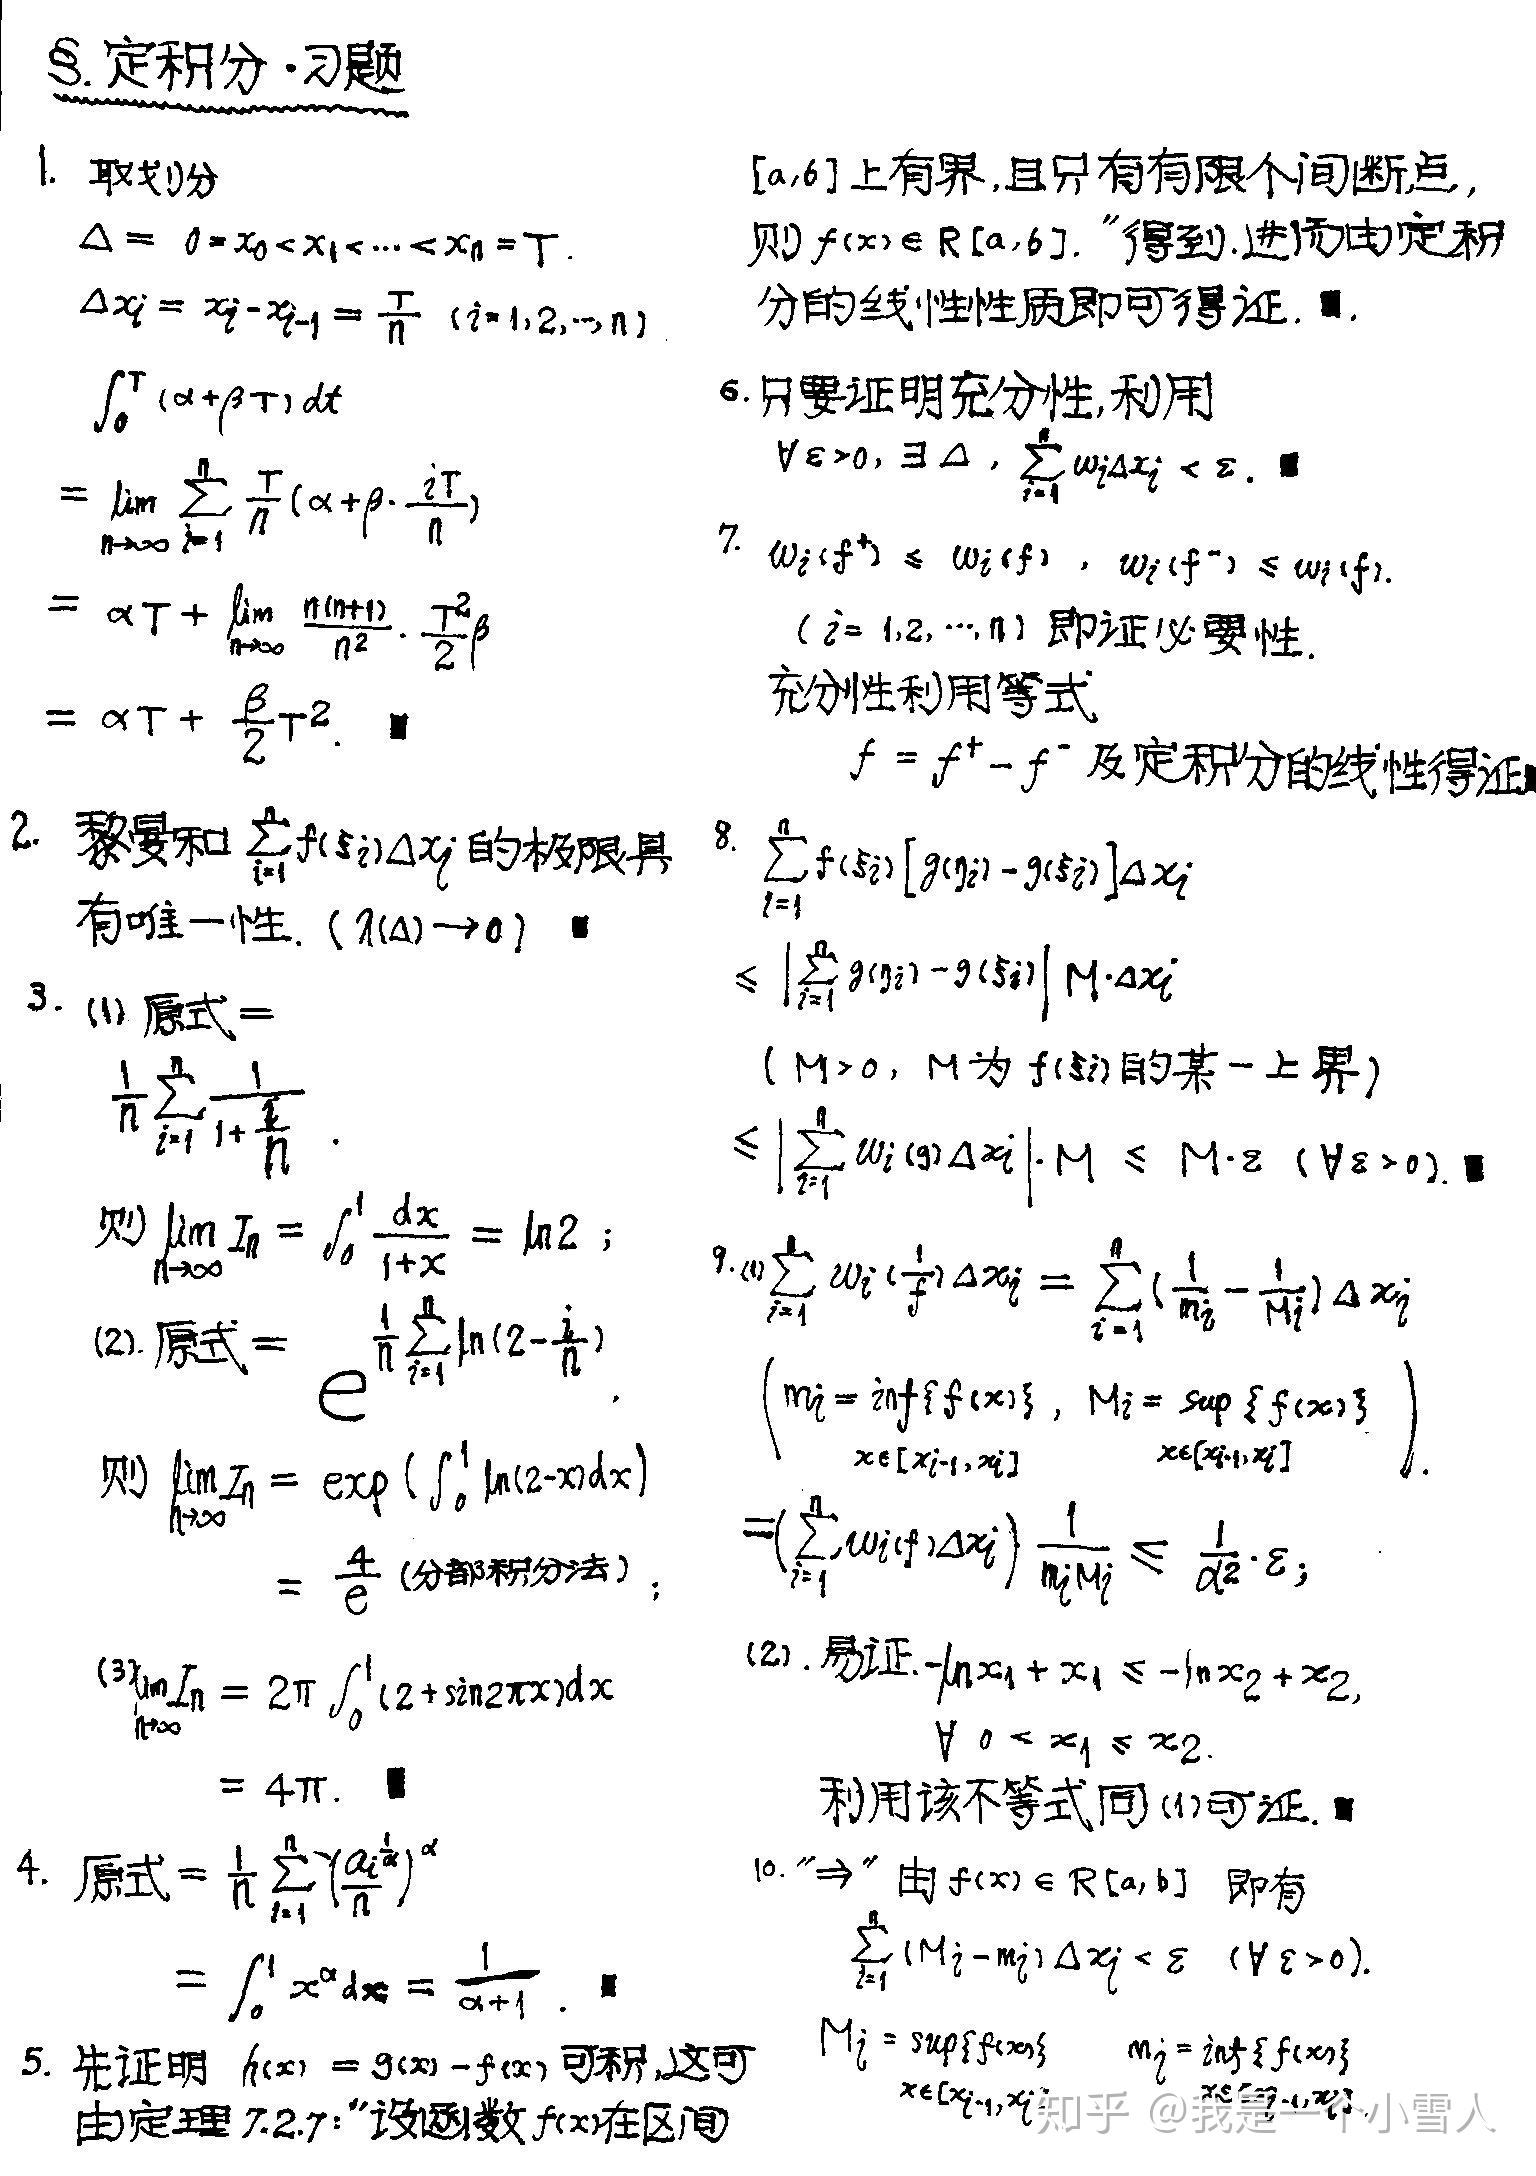 §. 定积分·习题
1. 取划分
Δ = 0 = x₀ < x₁ < ··· < xₙ = T.
Δxᵢ = xᵢ - xᵢ₋₁ = T/n (i = 1, 2, ···, n)
∫₀ᵀ (α+βT) dt
= lim_{n→∞} ∑_{i=1}^{n} T/n (α + β · iT/n)
= αT + lim_{n→∞} n(n+1)/n² · T²/2 β
= αT + β/2 T². ■
2. 黎曼和 ∑_{i=1}^{n} f(ξᵢ)Δxᵢ 的极限具
有唯一性. (λ(Δ)→0) ■
3. (1) 原式 =
1/n ∑_{i=1}^{n} 1/(1+i/n) .
则 lim_{n→∞} Iₙ = ∫₀¹ dx/(1+x) = ln2 ;
(2). 原式 = e^{1/n ∑_{i=1}^{n} ln(2-i/n)} .
则 lim_{n→∞} Iₙ = exp(∫₀¹ ln(2-x)dx)
= 4/e (分部积分法) ;
(3) lim_{n→∞} Iₙ = 2π ∫₀¹ (2+sin2πx)dx
= 4π. ■
4. 原式 = 1/n ∑_{i=1}^{n} (aᵢ^{1/α}/n)^α
= ∫₀¹ x^α dx = 1/(α+1) . ■
5. 先证明 h(x) = g(x) - f(x) 可积,这可
由定理7.2.7:"设函数 f(x)在区间
[a,b]上有界,且只有有限个间断点,
则 f(x)∈R[a,b]."得到.进而由定积
分的线性性质即可得证. ■.
6. 只要证明充分性,利用
∀ε>0, ∃Δ, ∑_{i=1}^{n} wᵢΔxᵢ < ε. ■
7. wᵢ(f⁺) ≤ wᵢ(f), wᵢ(f⁻) ≤ wᵢ(f).
(i = 1,2, ···,n) 即证必要性.
充分性利用等式
f = f⁺ - f⁻ 及定积分的线性得证■
8. ∑_{i=1}^{n} f(ξᵢ)[g(ηᵢ) - g(ξᵢ)]Δxᵢ
≤ |∑_{i=1}^{n} g(ηᵢ) - g(ξᵢ)| M·Δxᵢ
(M>0, M为 f(ξᵢ)的某一上界)
≤ |∑_{i=1}^{n} wᵢ(g)Δxᵢ|·M ≤ M·ε (∀ε>0). ■
9. (1) ∑_{i=1}^{n} wᵢ(1/f)Δxᵢ = ∑_{i=1}^{n} (1/mᵢ - 1/Mᵢ)Δxᵢ
(mᵢ = inf{f(x)}_{x∈[xᵢ₋₁,xᵢ]}, Mᵢ = sup{f(x)}_{x∈[xᵢ₋₁,xᵢ]}).
= (∑_{i=1}^{n} wᵢ(f)Δxᵢ) 1/(mᵢMᵢ) ≤ 1/α² · ε;
(2). 易证. -lnx₁ + x₁ ≤ -lnx₂ + x₂,
∀ 0 < x₁ ≤ x₂.
利用该不等式同(1)可证. ■
10. "⇒" 由 f(x)∈R[a,b] 即有
∑_{i=1}^{n} (Mᵢ - mᵢ)Δxᵢ < ε (∀ε>0).
Mᵢ = sup{f(x)}_{x∈[xᵢ₋₁,xᵢ]} mᵢ = inf{f(x)}_{x∈[xᵢ₋₁,xᵢ]}.
知乎 @我是一个小雪人